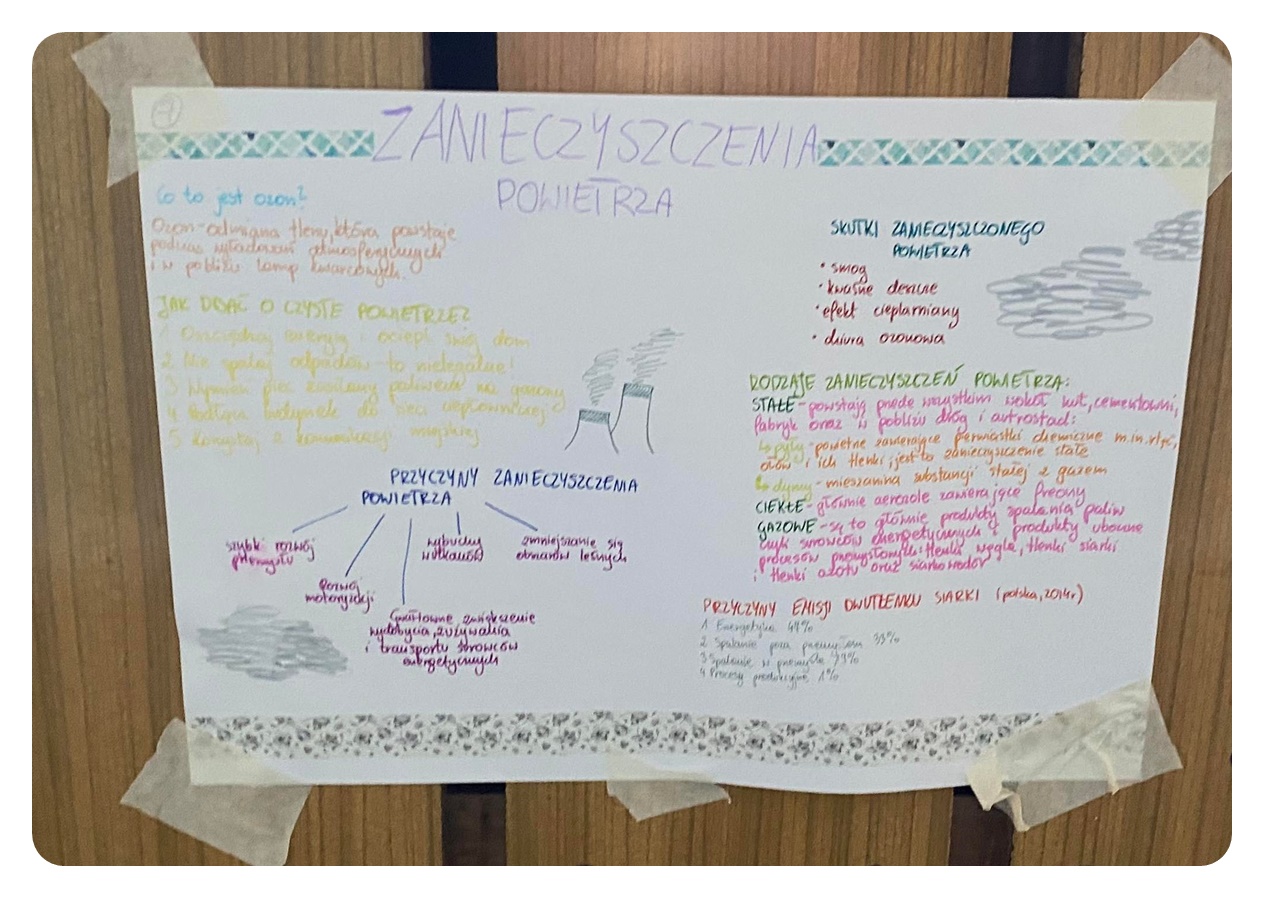 ZANIECZYSZCZENIA
POWIETRZA
Co to jest ozon?
Ozon-odmiana tlenu, która powstaje
podczas wyładowań atmosferycznych
i w pobliżu lamp kwarcowych.
JAK DBAĆ O CZYSTE POWIETRZE?
1 Oszczędzaj energię i ociepl swój dom
2 Nie spalaj odpadów - to nielegalne!
3 Wymień piec zasilany paliwem na gazowy
4 Podłącz budynek do sieci ciepłowniczej
5 Korzystaj z komunikacji miejskiej
PRZYCZYNY ZANIECZYSZCZENIA
POWIETRZA
szybki rozwój
przemysłu
Rozwój
motoryzacji
Gwałtowne zwiększenie
wydobycia, zużywania
i transportu surowców
energetycznych
wybuchy
wulkanów
zmniejszanie się
obszarów leśnych
SKUTKI ZANIECZYSZCZONEGO
POWIETRZA
• smog
• kwaśne deszcze
• efekt cieplarniany
• dziura ozonowa
RODZAJE ZANIECZYSZCZEŃ POWIETRZA:
STAŁE - powstają przede wszystkim wokół hut, cementowni,
fabryk oraz w pobliżu dróg i autrostad:
↳ pyły - powietrze zawierające pierwiastki chemiczne m.in. rtęć,
ołów i ich tlenki; jest to zanieczyszczenie stałe
↳ dymy - mieszanina substancji stałej z gazem
CIEKŁE - głównie aerozole zawierające freony
GAZOWE - są to głównie produkty spalania paliw
czyli surowców energetycznych i produkty uboczne
procesów przemysłowych: tlenki węgla, tlenki siarki
i tlenki azotu oraz siarkowodór
PRZYCZYNY EMISJI DWUTLENKU SIARKI (polska, 2014r)
1 Energetyka 44%
2 Spalanie poza przemysłem 33%
3 Spalanie w przemyśle
4 Procesy produkcyjne 1%